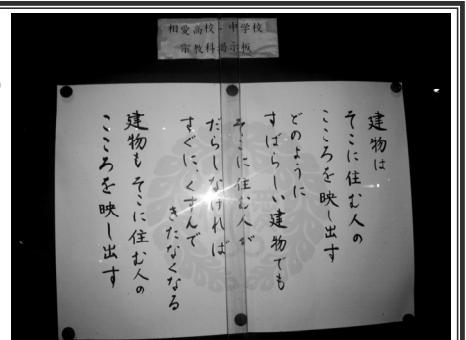 相愛高校・中学校
宗教科掲示板
建物は
そこに住む人の
こころを映し出す
どのように
すばらしい建物でも
そこに住む人が
だらしなければ
すぐに、くすんで
きたなくなる
建物もそこに住む人の
こころを映し出す